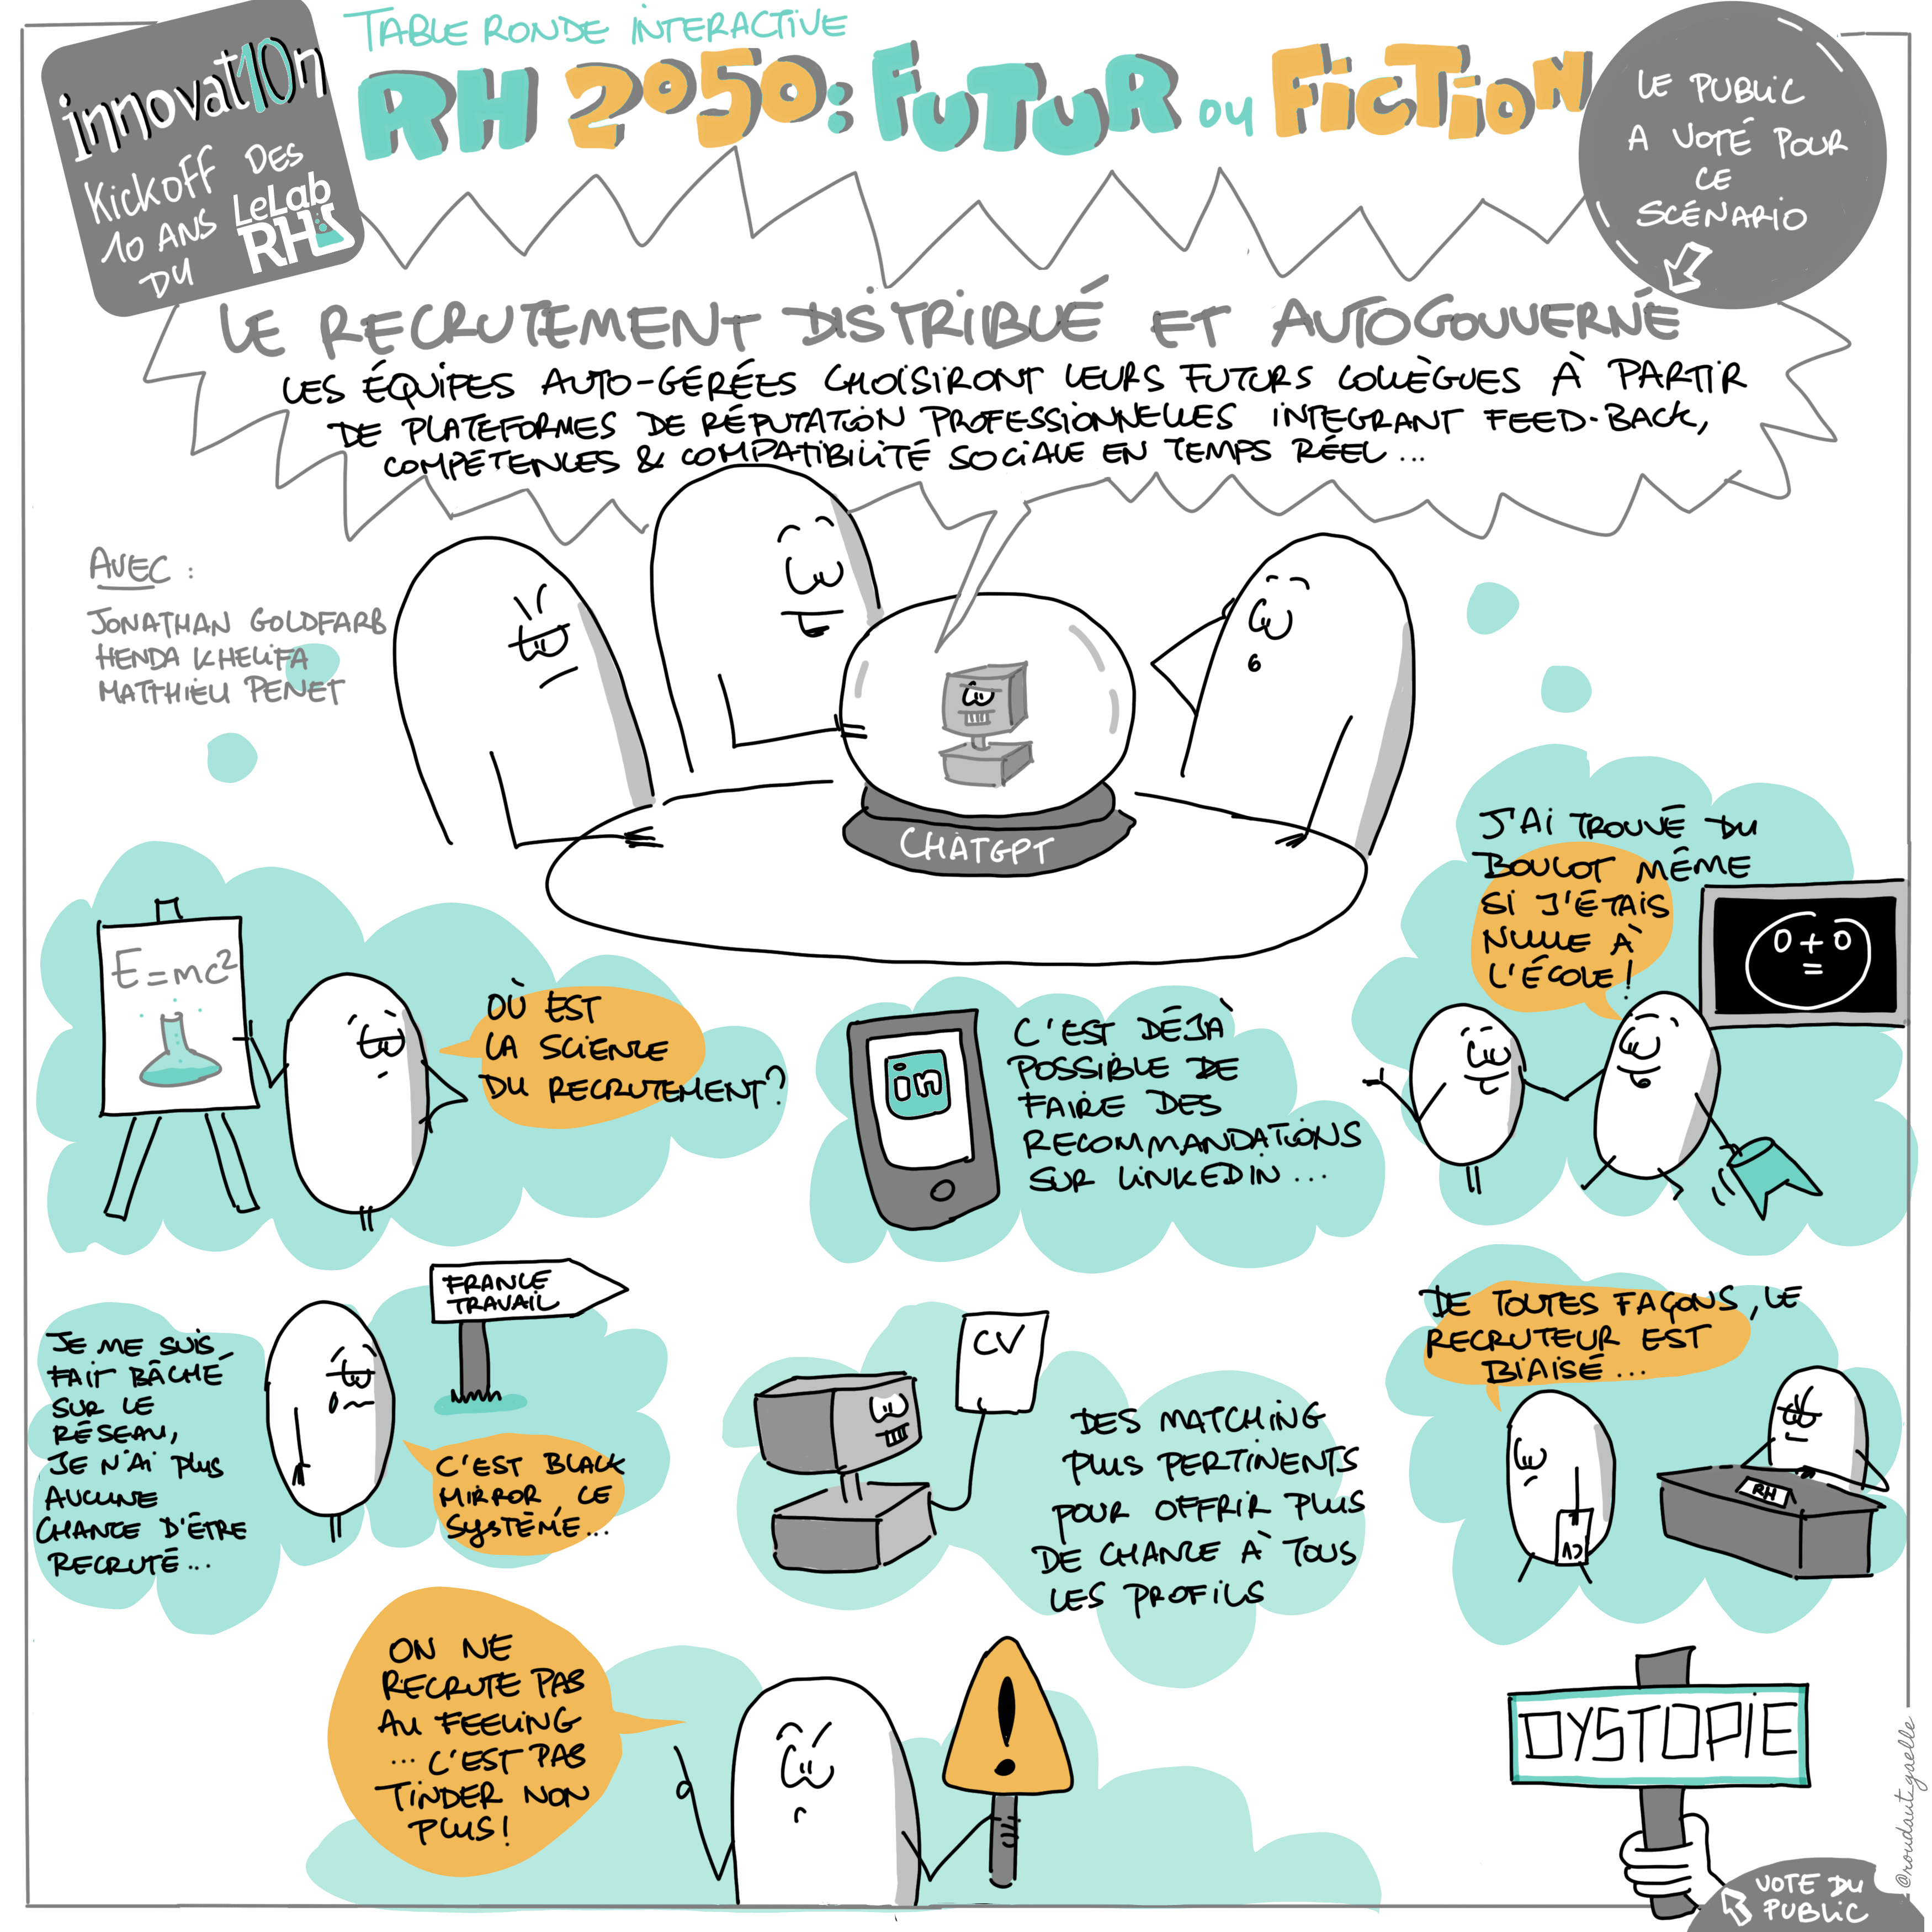 innovat10n
KICKOFF DES
10 ANS
DU
LeLab
RH
TABLE RONDE INTERACTIVE
RH 2050: FUTUR OU FICTION
LE PUBLIC
A VOTÉ POUR
CE
SCÉNARIO
LE RECRUTEMENT DISTRIBUÉ ET AUTOGOUVERNÉ
LES ÉQUIPES AUTO-GÉRÉES CHOISIRONT LEURS FUTURS COLLÈGUES À PARTIR
DE PLATEFORMES DE RÉPUTATION PROFESSIONNELLES INTEGRANT FEED-BACK,
COMPÉTENCES & COMPATIBILITÉ SOCIALE EN TEMPS RÉEL ...
AVEC :
JONATHAN GOLDFARB
HENDA KHELIFA
MATTHIEU PENET
CHATGPT
E=mc²
OÙ EST
LA SCIENCE
DU RECRUTEMENT?
in
C'EST DÉJÀ
POSSIBLE DE
FAIRE DES
RECOMMANDATIONS
SUR LINKEDIN ...
J'AI TROUVÉ DU
BOULOT MÊME
SI J'ÉTAIS
NULLE À
L'ÉCOLE!
0+0
=
JE ME SUIS
FAIT BÂCHÉ
SUR LE
RÉSEAU,
JE N'AI PLUS
AUCUNE
CHANCE D'ÊTRE
RECRUTÉ...
FRANCE
TRAVAIL
C'EST BLACK
MIRROR, CE
SYSTÈME...
CV
DES MATCHING
PLUS PERTINENTS
POUR OFFRIR PLUS
DE CHANCE À TOUS
LES PROFILS
DE TOUTES FAÇONS, LE
RECRUTEUR EST
BIAISÉ ...
CV
RH
ON NE
RECRUTE PAS
AU FEELING
... C'EST PAS
TINDER NON
PLUS!
!
DYSTOPIE
VOTE DU
PUBLIC
@roudautgaelle